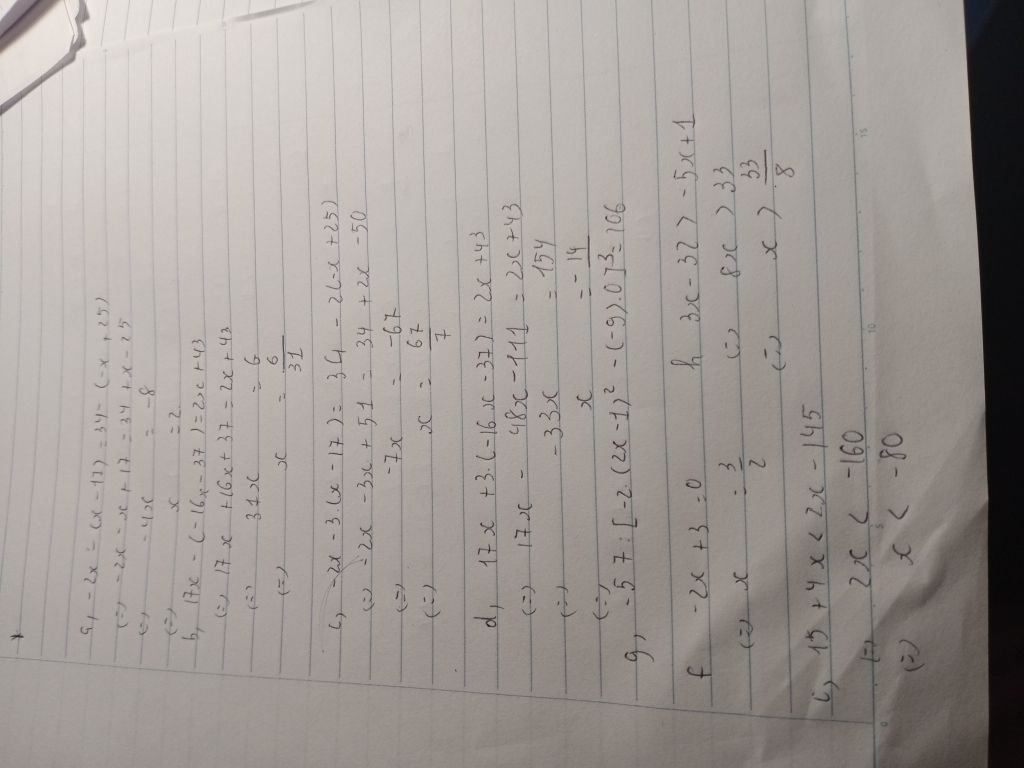 a, -2x - (x - 17) = 34 - (-x + 25)
(=) -2x - x + 17 = 34 + x - 25
(=) -4x = -8
(=) x = 2
b, 17x - (-16x - 37) = 2x + 43
(=) 17x + 16x + 37 = 2x + 43
(=) 31x = 6
(=) x = 6/31
c, -2x - 3.(x - 17) = 34 - 2(-x + 25)
(=) -2x - 3x + 51 = 34 + 2x - 50
(=) -7x = -67
(=) x = 67/7
d, 17x + 3.(-16x - 37) = 2x + 43
(=) 17x - 48x - 111 = 2x + 43
(=) -33x = 154
(=) x = -14/
g, -57 : [-2.(2x - 1)² - (-9).0] 3 = 106
f -2x + 3 = 0 h 3x - 32 > -5x + 1
(=) x = 3/2 (=) 8x > 33
(=) x > 33/8
i, 15 + 4x < 2x - 145
(=) 2x < -160
(=) x < -80